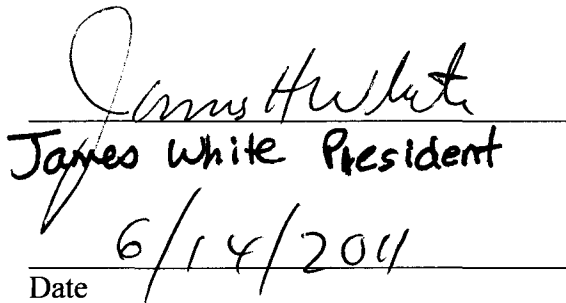 James H White
James White President
6/14/2011
Date